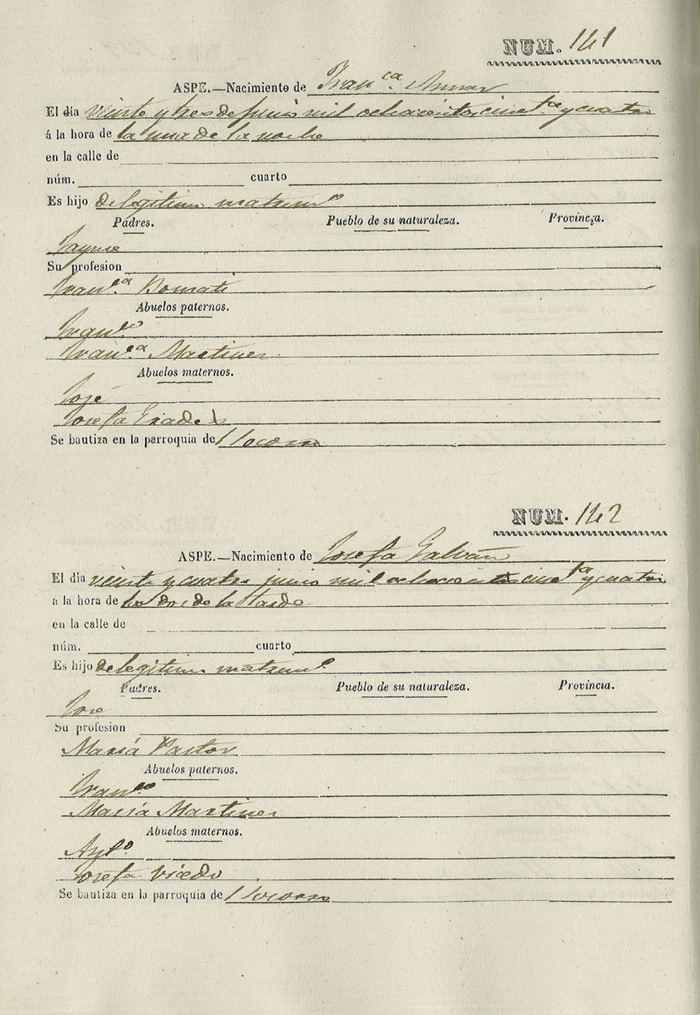 NUM. 141
ASPE.—Nacimiento de Franca
El dia veinte y tres de junio mil ochocientos cincta y cuatro
á la hora de la una de la noche
en la calle de
núm. cuarto
Es hijo de legitimo matrimo
Padres. Pueblo de su naturaleza. Provincia.
Jayme
Su profesion
Franca
Abuelos paternos.
Franco
Franca Martinez
Abuelos maternos.
José
Josefa
Se bautiza en la parroquia de
NUM. 142
ASPE.—Nacimiento de Josefa Galvañ
El dia veinte y cuatro junio mil ochocientos cincta y cuatro
á la hora de las dos de la tarde
en la calle de
núm. cuarto
Es hijo de legitimo matrimo
Padres. Pueblo de su naturaleza. Provincia.
Jose
Su profesion
Maria Pastor
Abuelos paternos.
Franco
Maria Martinez
Abuelos maternos.
Josefa Vicedo
Se bautiza en la parroquia de